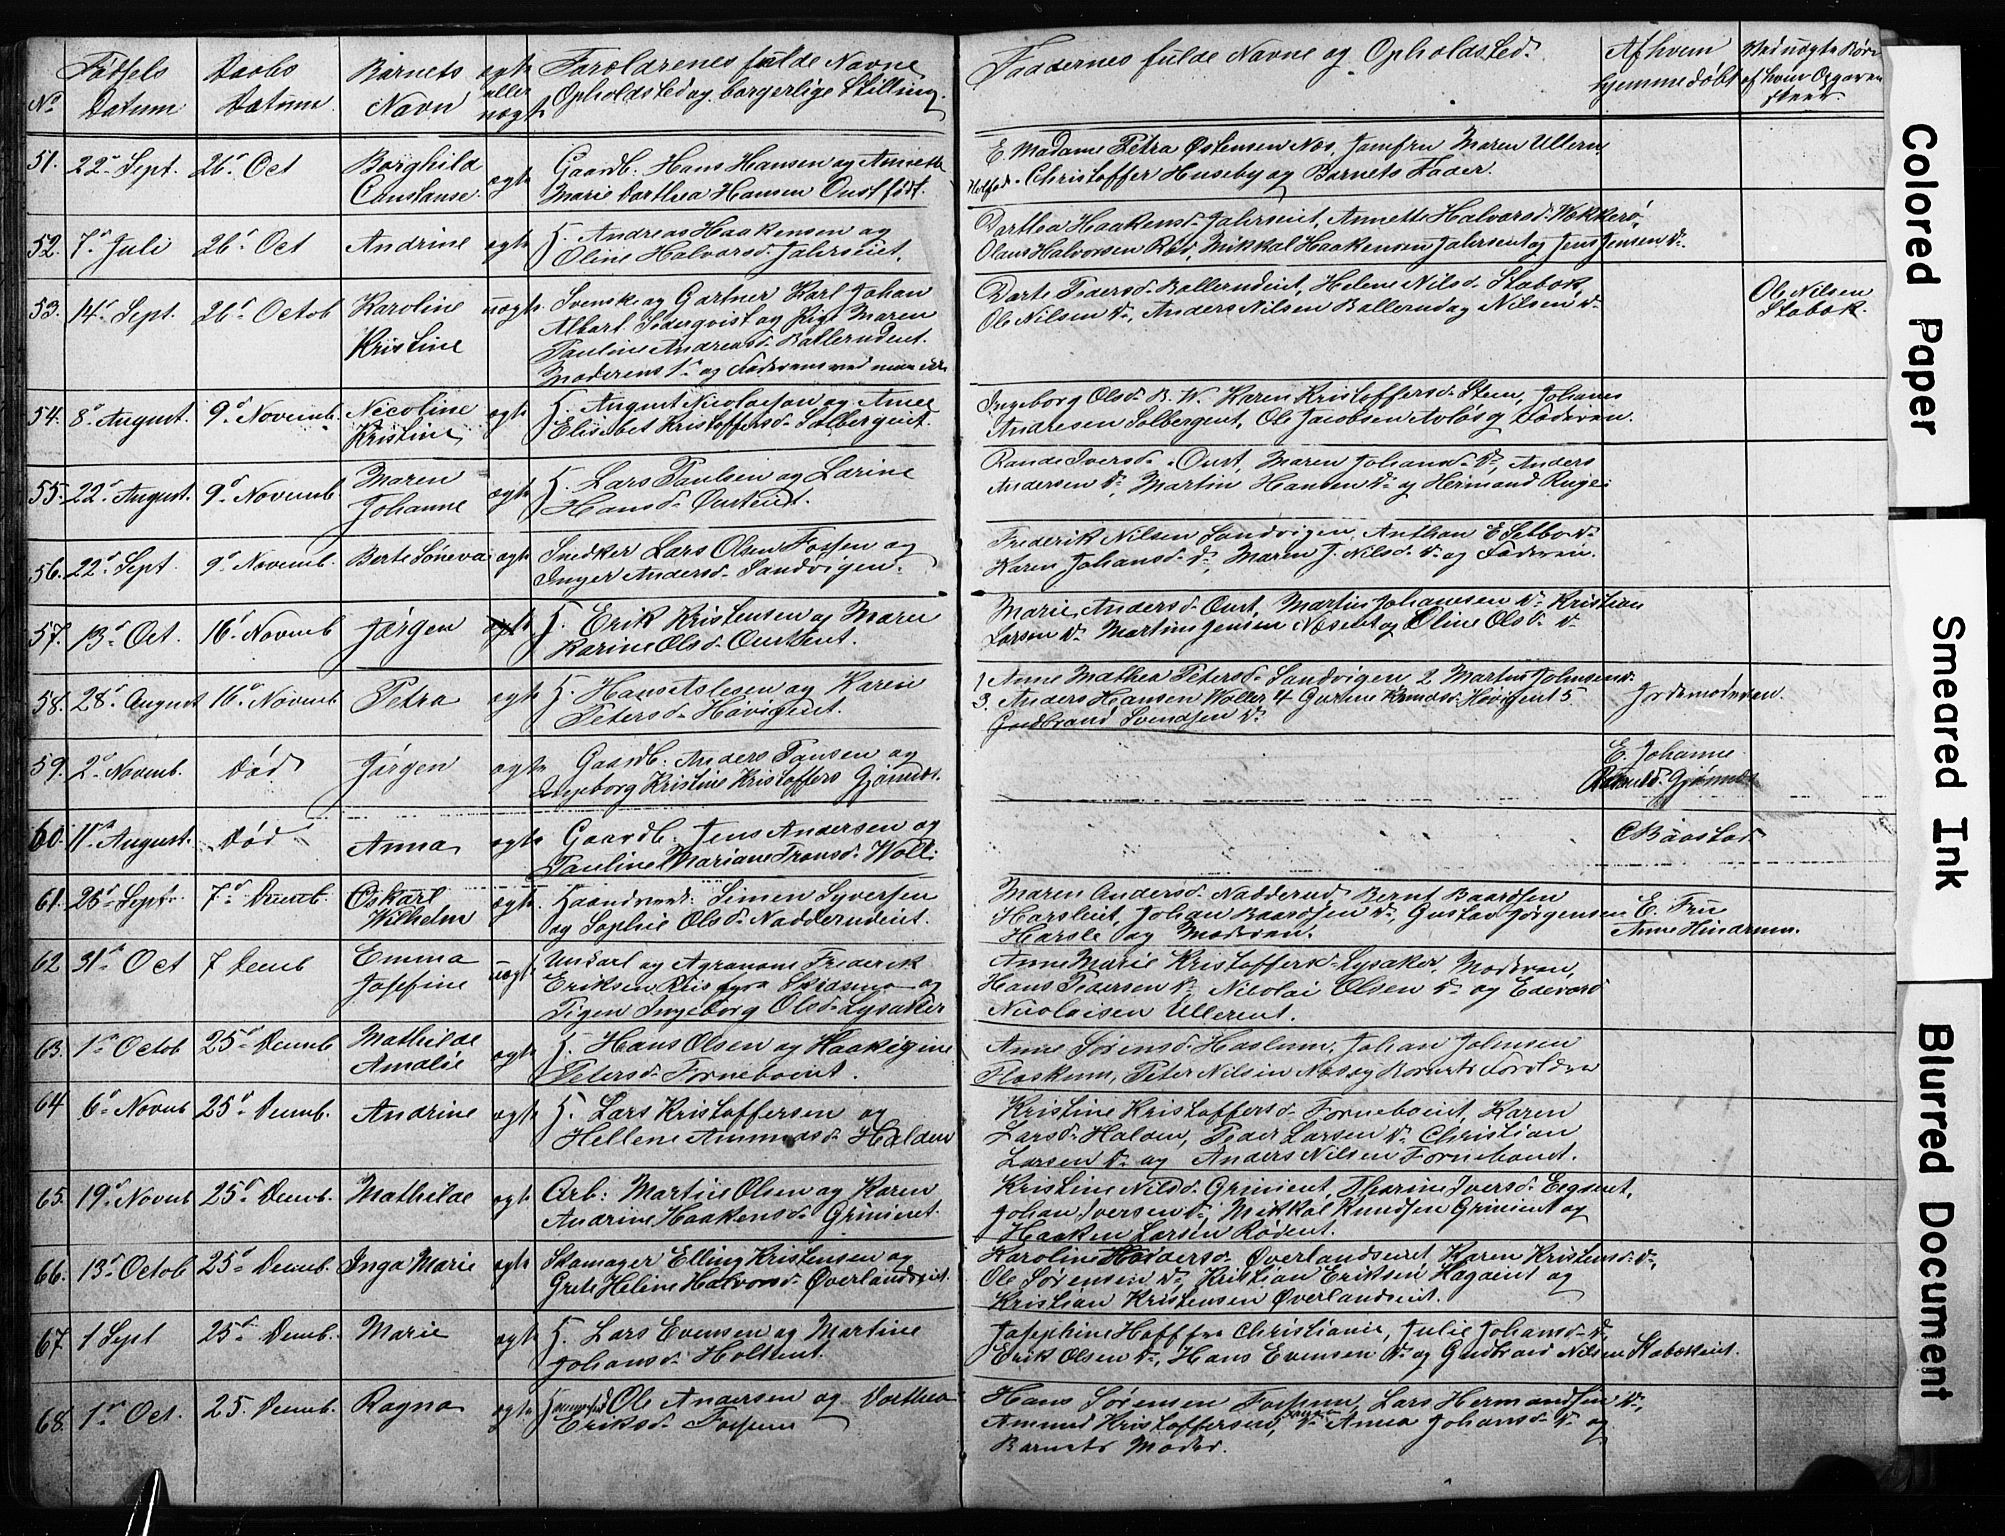 No
Fødsels Datum
Daabs Datum
Barnets Navn
ægte eller uægt
Foreldrenes fulde Navne
Opholdsted og borgerlige Stilling.
Faddernes fulde Navne og Opholdsted.
Af hvem hjemmedøbt
Ved uægte Børn af hvem Opgaven skeer.
51. 22de Sept. 26de Oct Borghild Constanse. ægte
Gaardb. Hans Hansen og Annette
Marie Dorthea Hansen Oust født.
E. Madame Petra Østensen Næs, Jomfru Maren Ullern
Christoffer Huseby og Barnets Fader.
52. 7de Juli 26de Oct Andrine ægte
H. Andreas Haakensen og
Oline Halvorsd. Jahrseiet.
Dorthea Haakensd. Jahrseiet, Annette Halvorsd. Vækkerø
Olaus Halvorsen Rød, Mikkal Haakensen Jahrseiet og Jens Jensen do.
53. 14de Sept. 26de Octob Karoline Kristine uægte
Svenske og Gartner Karl Johan
Albert Søderqvist og Pige Maren
Pauline Andreasd. Ballerudeiet.
Moderens 1ste og Faderens ved man ikke
Dorte Pedersd. Ballerudeiet, Helene Nilsd. Stabæk
Ole Nilsen do, Anders Nilsen Ballerud og Nilsen do
Ole Nilsen Stabæk.
54. 8de August. 9de Novemb. Nicoline Kristine ægte
H. August Nicolaisen og Anne
Elisabet Kristoffersd. Solbergeiet.
Ingeborg Olsd. B. W. Karen Kristoffersd. Steen, Johanes
Andresen Solbergeiet, Ole Jacobsen Avløs og Faderen.
55. 22de August. 9de Novemb. Maren Johanne ægte
H. Lars Paulsen og Larine
Hansd. Oursteiet.
Rande Iversd. Oust, Maren Johansd. do, Anders
Andersen do, Martin Hansen do og Hermand Ruge:
56. 22de Sept. 9de Novemb. Berte Søneva ægte
Snedker Lars Olsen Fossen og
Inger Andersd. Sandvigen.
Frederik Nilsen Sandvigen, Anthon E. Sætbo do
Karen Johansd. do, Maren J. Nilsd. do og Faderen.
57. 13de Oct. 16de Novemb Jørgen ægte
H. Erik Kristensen og Maren
Karine Olsd. Oursteiet.
Marie Andersd. Oust, Martin Johannesen do Kristian
Larsen do Martin Jensen Næseiet og Oline Olsd. do
58. 28de August 16de Novemb. Petra ægte
H. Hans Aslesen og Karen
Petersd. Høvigeiet.
1 Anne Mathea Petersd. Sandvigen 2 Martin Johnsen do
3. Anders Hansen Woller 4 Gurine Høvigeiet 5.
Gudbrand Svendsen do
Jordemoderen.
59. 2de Novemb. Død Jørgen ægte
Gaardb. Anders Paulsen og
Ingeborg Kristine Kristoffers Gjønnes.
E. Johanne
Gjønnes
60. 11te August. Død Anna ægte
Gaardb. Jens Andersen og
Pauline Mariane Fransd. Woll:
C Baastad
61. 26de Sept. 7de Decemb. Oskarl Wilhelm ægte
Haandværk: Simen Syversen
og Sophie Olsd. Nadderudeiet.
Maren Andersd. Nadderud, Bernt Baardsen
Harsleiet, Johan Baardsen do, Gustav Jørgensen
Harsle og Moderen.
E. Fru
Anne Hindrum.
62 31te Oct 7 Decemb Emma Josefine uægte
Unkarl og Agronom Frederik
Eriksen Riis fra Skedsmo og
Pigen Ingeborg Olsd. Lysaker
Anne Marie Kristoffersd. Lysaker, Moderen,
Hans Pedersen do Nicolai Olsen do og Edevard
Nicolaisen Ullereiet.
63. 1ste Octob 25de Decemb Mathilde Amalie ægte
H. Hans Olsen og Haakigine
Petersd. Forneboeiet.
Anne Sørensd. Haslum, Johan Johnsen
Flaskum, Peter Nilsen Næs og Barnets Foreldre
64 6te Novemb 25de Decemb. Andrine ægte
H. Lars Kristoffersen og
Hellene Ammundsd. Halden
Kristine Kristoffersd. Forneboeiet, Karen
Larsd. Halden, Peder Larsen do Christian
Larsen do og Anders Nilsen Forneboeiet.
65. 19de Novemb 25de Decemb. Mathilde ægte
Arb: Martin Olsen og Karen
Andrine Haakensd. Grinieiet.
Kristine Nilsd. Grinieiet, Thorine Iversd. Eegseiet,
Johan Iversen do, Mikkal Knudsen Grinieiet og
Haaken Larsen Rødeiet.
66. 13de Octob 25de Decemb. Inga Marie ægte
Skomager Elling Kristensen og
Grete Heline Halvorsd. Øverlandseiet.
Karoline Øverlandseiet, Karen Kristensd. do,
Ole Sørensen do, Kristian Eriksen Hagaeiet og
Kristian Kristensen Øverlandseiet.
67. 1 Sept 25de Decemb. Marie ægte
H. Lars Evensen og Martine
Johansd. Holteiet.
Josephine Hoff fra Christiania, Julie Johansd. do,
Erik Olsen do, Hans Evensen do og Gudbrand Nilsen Stabækeiet.
68. 1ste Oct. 25. Decemb. Ragna ægte
Ole Andersen og Dorthea
Eriksd. Fossum
Hans Sørensen Fossum, Lars Hermandsen do,
Amund Kristoffersen, do Anna Johansd. do og
Barnets Moder.
Colored Paper
Smeared Ink
Blurred Document